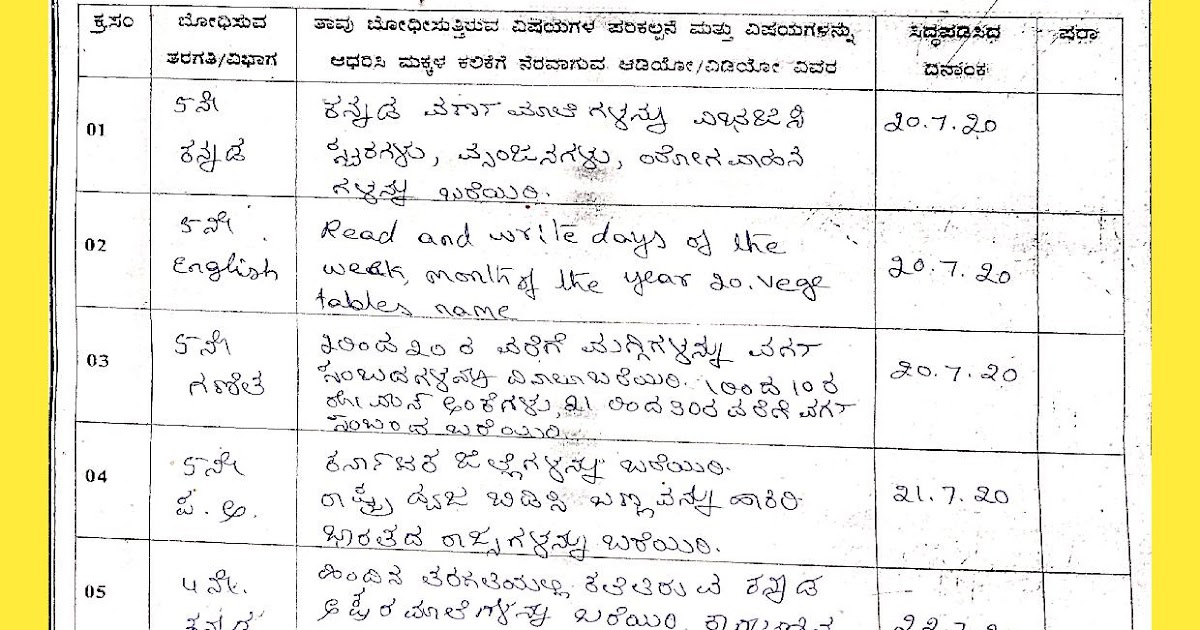 ಕ್ರ.ಸಂ ಬೋಧಿಸುವ ತಾವು ಬೋಧೀಸುತ್ತಿರುವ ವಿಷಯಗಳ ಪರಿಕಲ್ಪನೆ ಮತ್ತು ವಿಷಯಗಳನ್ನು ಸಿದ್ದಪಡಿಸಿದ ಷರಾ
ತರಗತಿ/ವಿಭಾಗ ಆಧರಿಸಿ ಮಕ್ಕಳ ಕಲಿಕೆಗೆ ನೆರವಾಗುವ ಆಡಿಯೋ/ವಿಡಿಯೋ ವಿವರ ದಿನಾಂಕ
01 5ನೇ ಕನ್ನಡ ವರ್ಣಮಾಲೆಗಳನ್ನು ವಿಭಜಿಸಿ 20.7.20
ಕನ್ನಡ ಸ್ವರಗಳು, ವ್ಯಂಜನಗಳು, ಯೋಗವಾಹನ
ಗಳನ್ನು ಬರೆಯಿರಿ.
02 5ನೇ Read and write days of the 20.7.20
English week, month of the year 20. vege
tables name
03 5ನೇ 2ರಿಂದ 20 ರ ವರೆಗೆ ಮಗ್ಗಿಗಳನ್ನು ವರ್ಗ 20.7.20
ಗಣಿತ ಬರೆಯಿರಿ. 1ರಿಂದ 10ರ
ರೋಮನ್ ಅಂಕೆಗಳು, 21 ರಿಂದ 30ರ ವರೆಗೆ ವರ್ಗ
ಬರೆಯಿರಿ.
04 5ನೇ ಕರ್ನಾಟಕ ಜಿಲ್ಲೆಗಳನ್ನು ಬರೆಯಿರಿ. 21.7.20
ಪ.ಅ. ರಾಷ್ಟ್ರ ಧ್ವಜ ಬಿಡಿಸಿ ಬಣ್ಣವನ್ನು ಹಾಕಿರಿ
ಭಾರತದ ರಾಜ್ಯಗಳನ್ನು ಬರೆಯಿರಿ.
05 4ನೇ. ಹಿಂದಿನ ತರಗತಿಯಲ್ಲಿ ಕಲಿತಿರುವ ಕನ್ನಡ
ಕನ್ನಡ ಅಕ್ಷರಮಾಲೆಗಳನ್ನು ಬರೆಯಿರಿ.